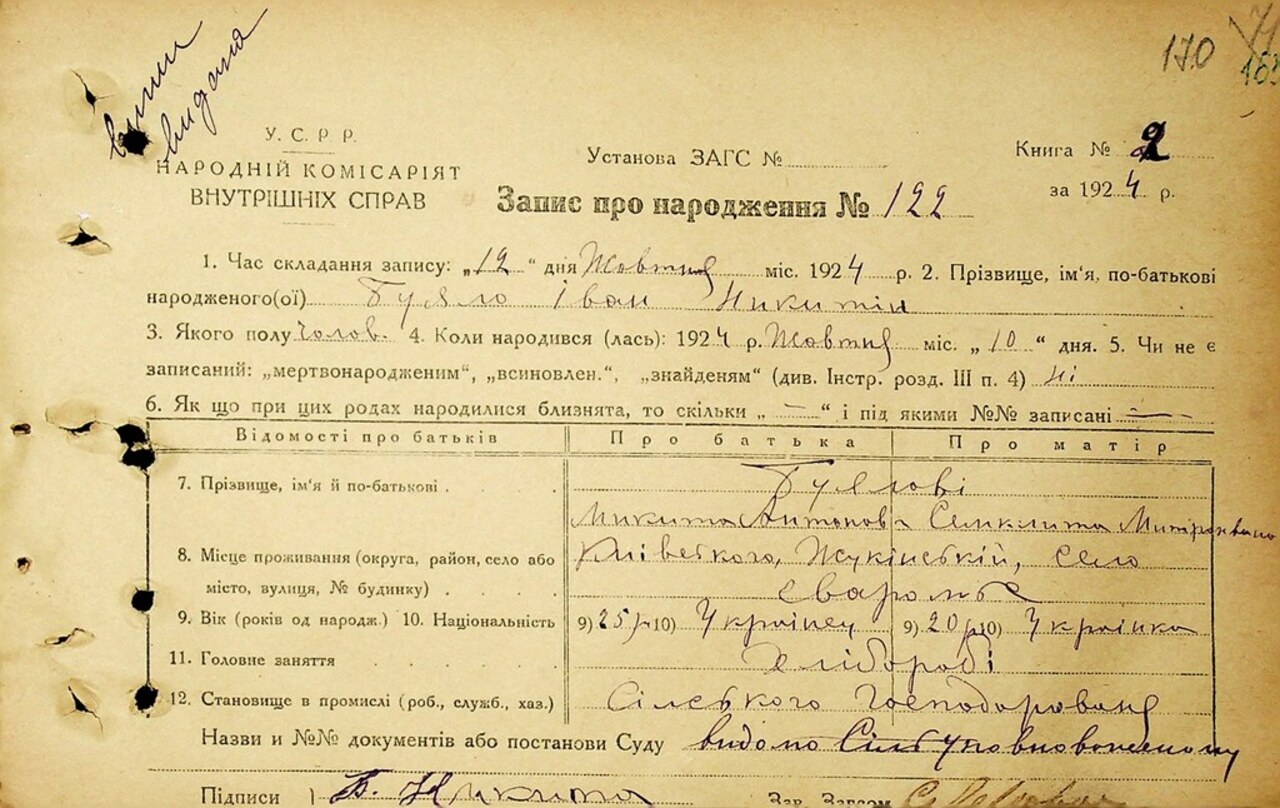 випис
видана
170
71
У. С. Р. Р.
НАРОДНІЙ КОМІСАРІЯТ
ВНУТРІШНІХ СПРАВ
Установа ЗАГС №
Книга № 2
за 1924 р.
Запис про народження № 122
1. Час складання запису: „12“ дня Жовтня міс. 1924 р. 2. Прізвище, ім'я, по-батькові
народженого(ої) Гузло Іван Никитін
3. Якого полу чолов. 4. Коли народився (лась): 1924 р. Жовтня міс. „10“ дня. 5. Чи не є
записаний: „мертвонародженим“, „всиновлен.“, „знайденям“ (див. Інстр. розд. III п. 4) ні
6. Як що при цих родах народилися близнята, то скільки „ — “ і під якими №№ записані —
Відомості про батьків Про батька Про матір
7. Прізвище, ім'я й по-батькові
Микита Антонов
8. Місце проживання (округа, район, село або Київського, Жукінській, село
місто, вулиця, № будинку) Сваромьє
9. Вік (років од народж.) 10. Національність 9) 25 р 10) Українец 9) 20 р 10) Українка
11. Головне заняття Хлібороби
12. Становище в промислі (роб., служб., хаз.) Сілського Господорованя
Назви и №№ документів або постанови Суду видомо Сільуповновоженому
Підписи Никита Зав. Загсом